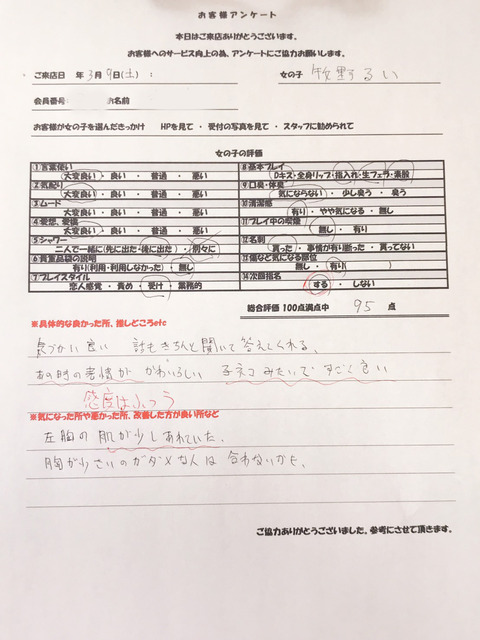 お客様アンケート
本日はご来店ありがとうございます。
お客様へのサービス向上の為、アンケートにご協力お願いします。
ご来店日 年 3月 9日(土) : 女の子 牧野るい
会員番号 お名前
お客様が女の子を選んだきっかけ HPを見て ・ 受付の写真を見て ・ スタッフに勧められて
女の子の評価
①言葉使い
大変良い ・ 良い ・ 普通 ・ 悪い
②気配り
大変良い ・ 良い ・ 普通 ・ 悪い
③ムード
大変良い ・ 良い ・ 普通 ・ 悪い
④愛想、愛嬌
大変良い ・ 良い ・ 普通 ・ 悪い
⑤シャワー
二人で一緒に(先に出た・後に出た) ・ 別々に
⑥貴重品袋の説明
有り(利用・利用しなかった) ・ 無し
⑦プレイスタイル
恋人感覚 ・ 責め ・ 受け ・ 業務的
⑧基本プレイ
Dキス・全身リップ・指入れ・生フェラ・素股
⑨口臭・体臭
気にならない ・ 少し臭う ・ 臭う
⑩清潔感
有り ・ やや気になる ・ 無し
⑪プレイ中の喫煙
有り ・ 無し
⑫名刺
貰った ・ 事情が有り断った ・ 貰ってない
⑬傷など気になる部位
無し ・ 有り( )
⑭次回指名
する ・ しない
総合評価 100点満点中 95 点
※具体的な良かった所、推しどころetc
気づかい良い 話もきちんと聞いて答えてくれる、
あの時の表情が かわいらしい 子ネコみたいで すごく良い
感度はふつう
※気になった所や悪かった所、改善した方が良い所など
左胸の肌が少しあれていた、
胸が小さいのがダメな人は 合わないかも、
ご協力ありがとうございました。参考にさせて頂きます。